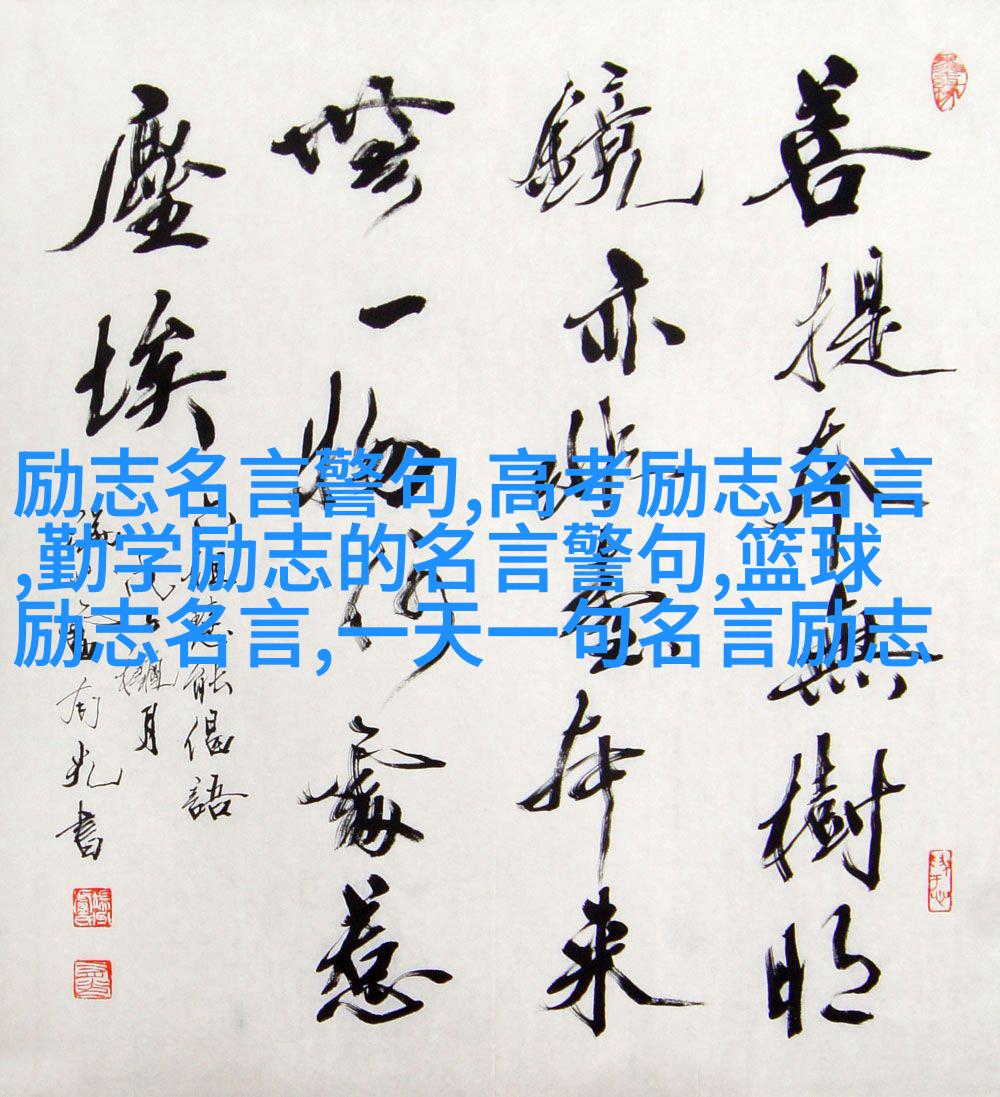 善提本無樹明
鏡亦非臺本来
無一物何處惹
塵埃
六祖慧能偈語
月
書
励志名言警句,高考励志名言
,勤学励志的名言警句,篮球
励志名言,一天一句名言励志